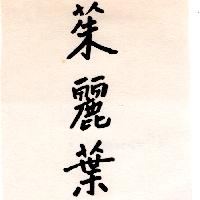 茱麗葉